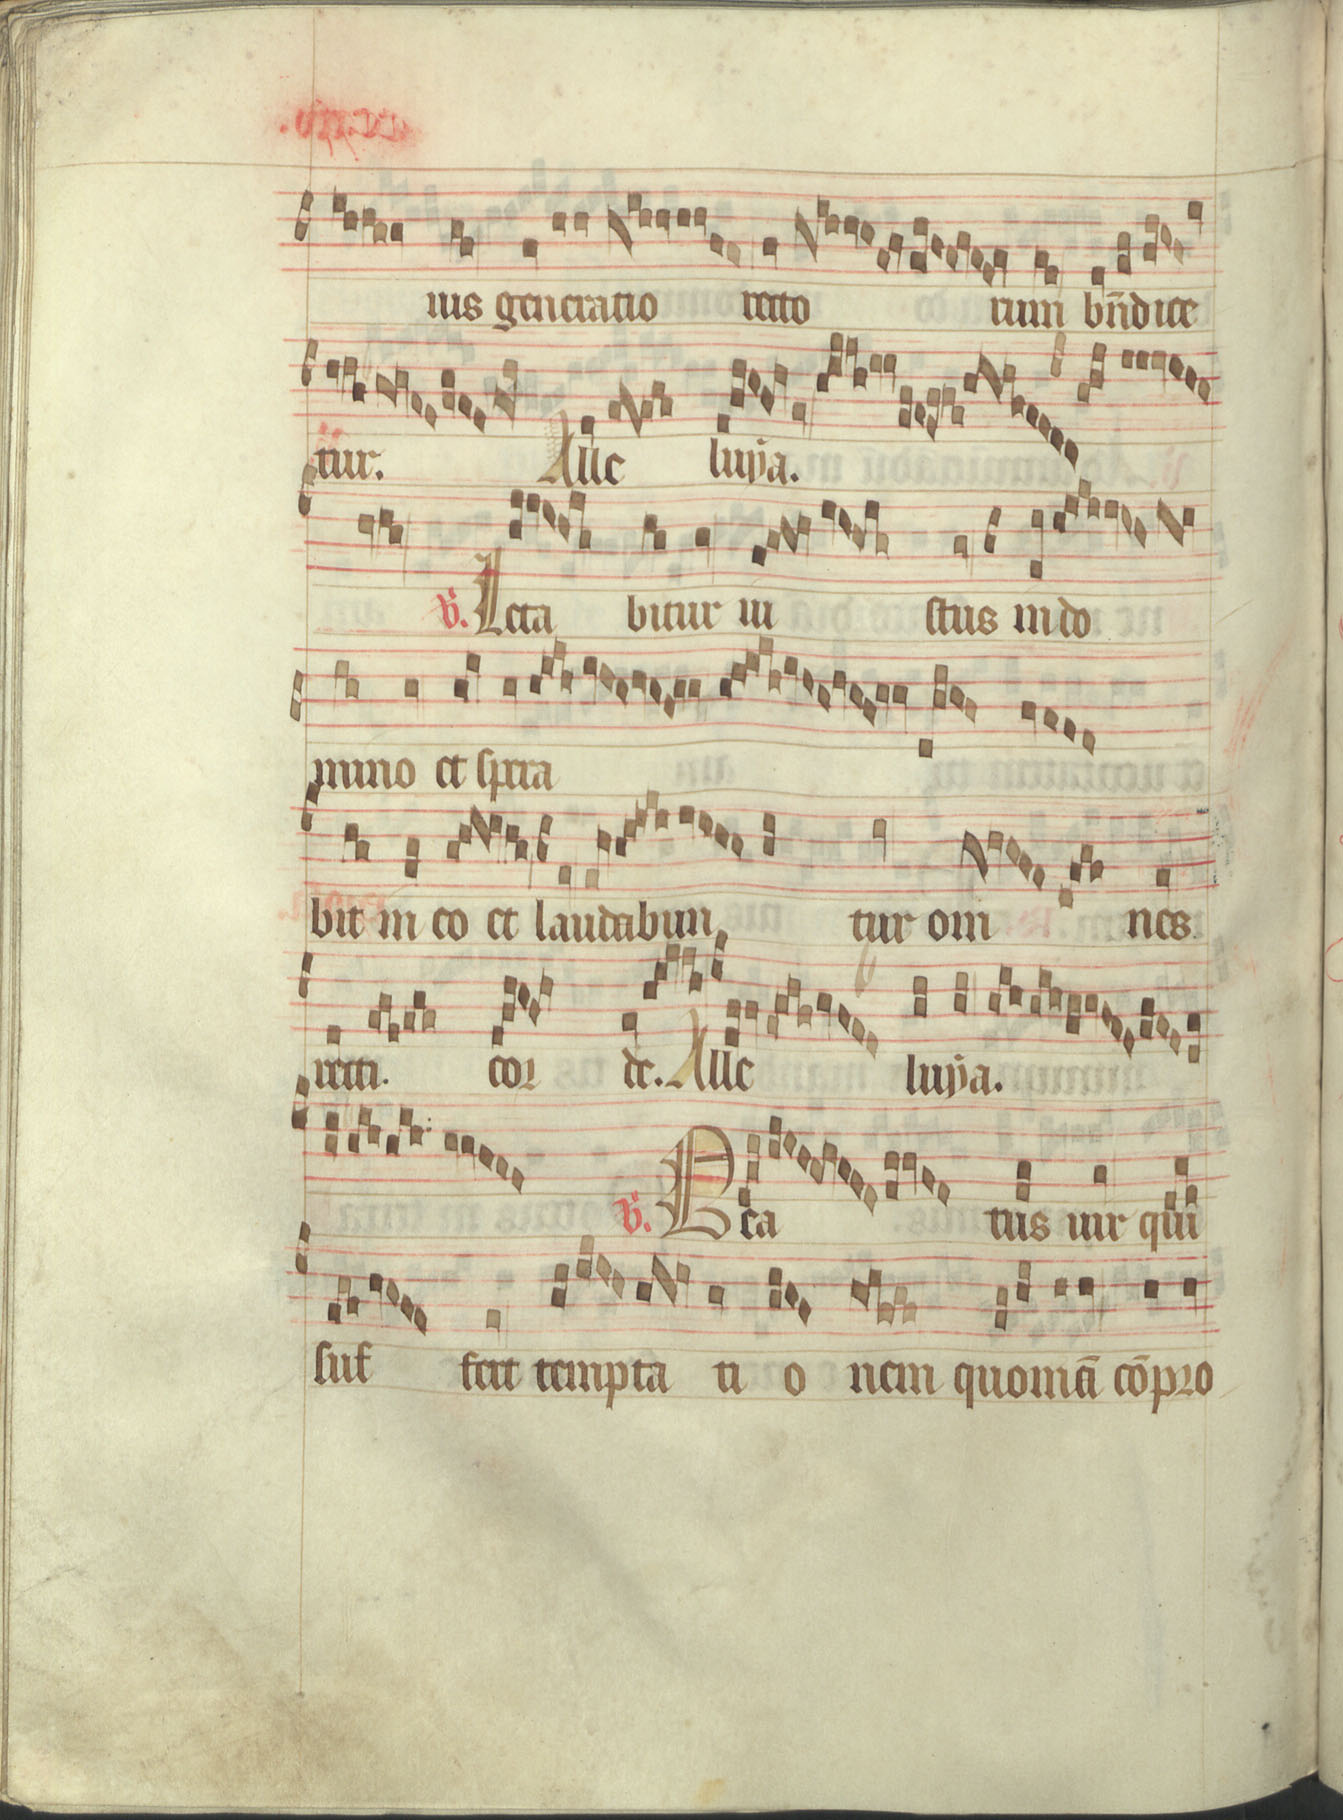 ius generatio recto rum bn̄dice
tur. Alle luẏa.
v̄. Leta bitur iu stus in do
mino et spera
bit in eo et laudabun tur om nes
recti. cor de. Alle luẏa.
v̄. Bea tus uir qui
suf fert tempta ti o nem quoniā cōpro